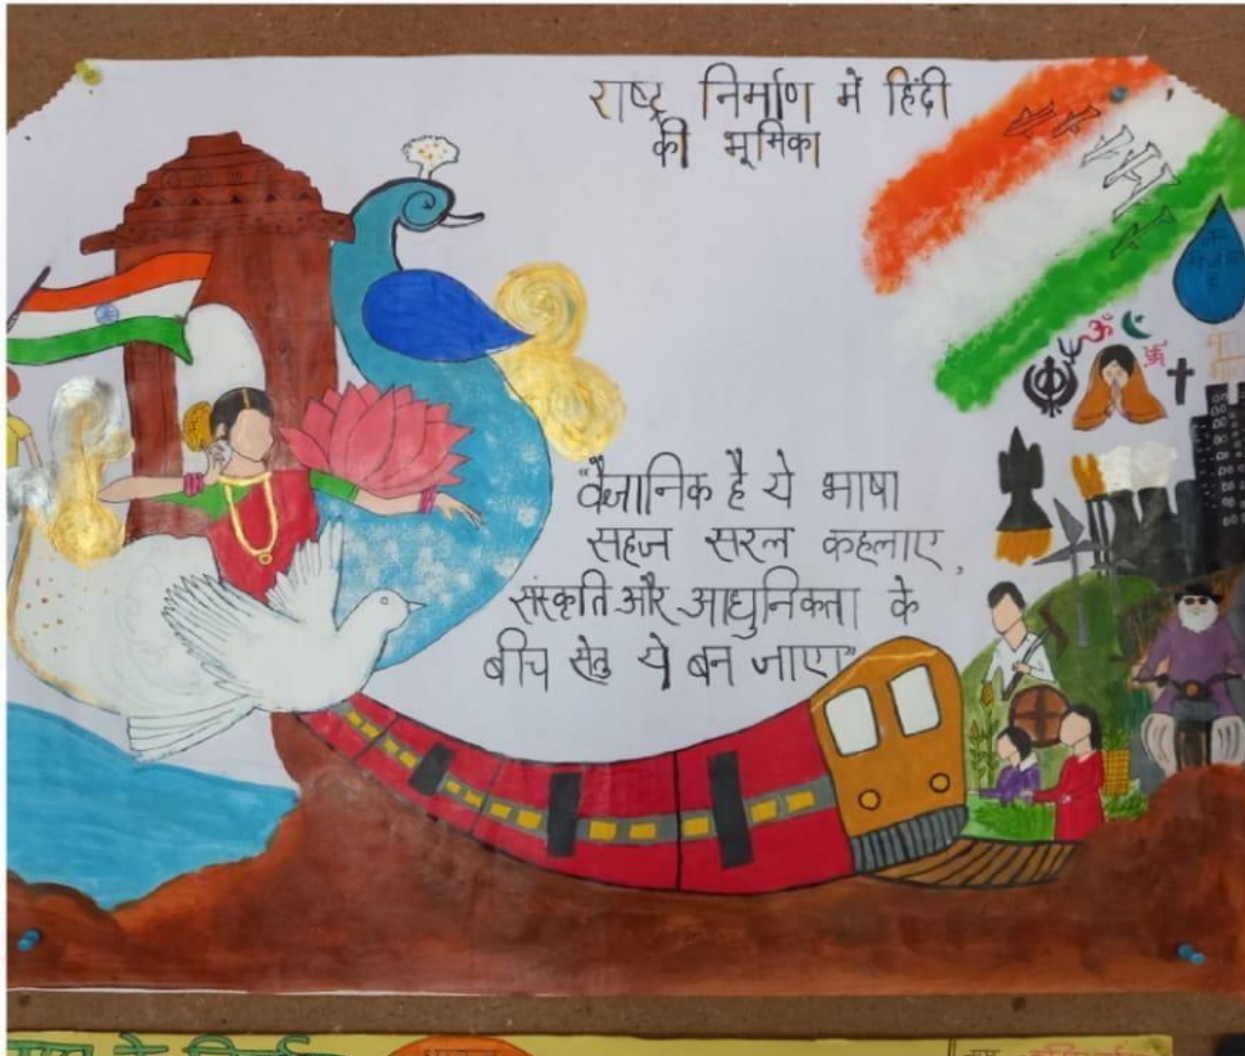 राष्ट्र निर्माण में हिंदी
की भूमिका
"वैज्ञानिक है ये भाषा
सहज सरल कहलाए,
संस्कृति और आधुनिकता के
बीच सेतु ये बन जाए"